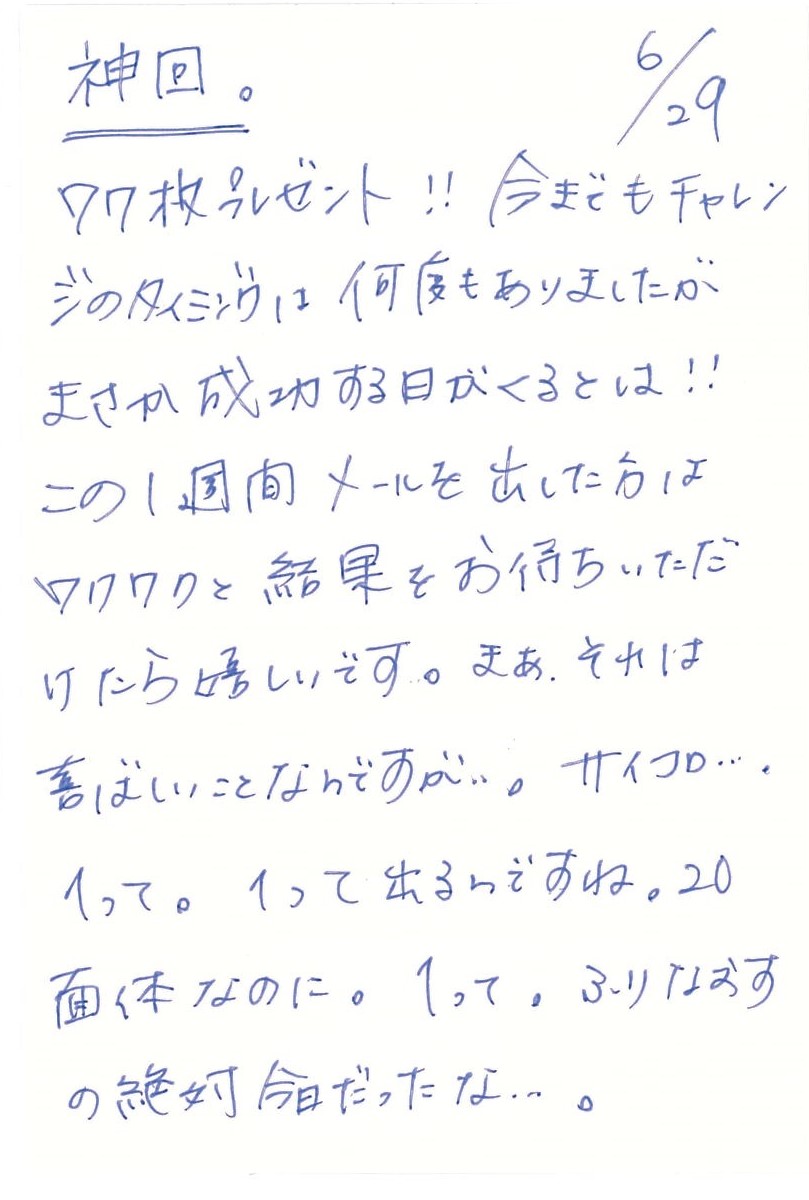 神回。 6/29
77枚プレゼント!! 今までもチャレン
ジのタイミングは何度もありましたが
まさか成功する日がくるとは!!
この1週間メールを出した方は
ワクワクと結果をお待ちいただ
けたら嬉しいです。まあ、それは
喜ばしいことなんですが…。サイコロ…。
1って。1って出るんですね。20
面体なのに。1って。ふりなおす
の絶対今日だったな…。